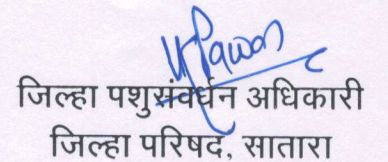 जिल्हा पशुसंवर्धन अधिकारी
जिल्हा परिषद, सातारा